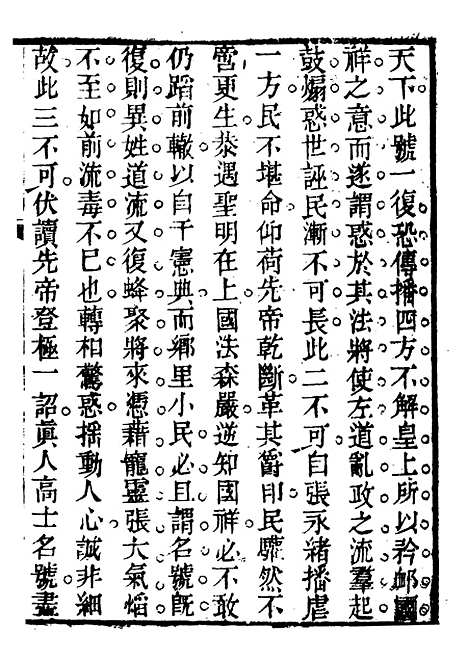 天下此號一復恐傳播四方不解皇上所以矜卹國
祥之意而遂謂惑於其法將使左道亂政之流羣起
鼓煽惑世誣民漸不可長此二不可自張永緒播虐
一方民不堪命仰荷先帝乾斷革其爵印民驩然不
啻更生恭遇聖明在上國法森嚴逆知國祥必不敢
仍蹈前轍以自干憲典而鄉里小民必且謂名號旣
復則異姓道流又復蜂聚將來憑藉寵靈張大氣熖
不至如前流毒不已也轉相驚惑揺動人心誠非細
故此三不可伏讀先帝登極一詔眞人高士名號盡